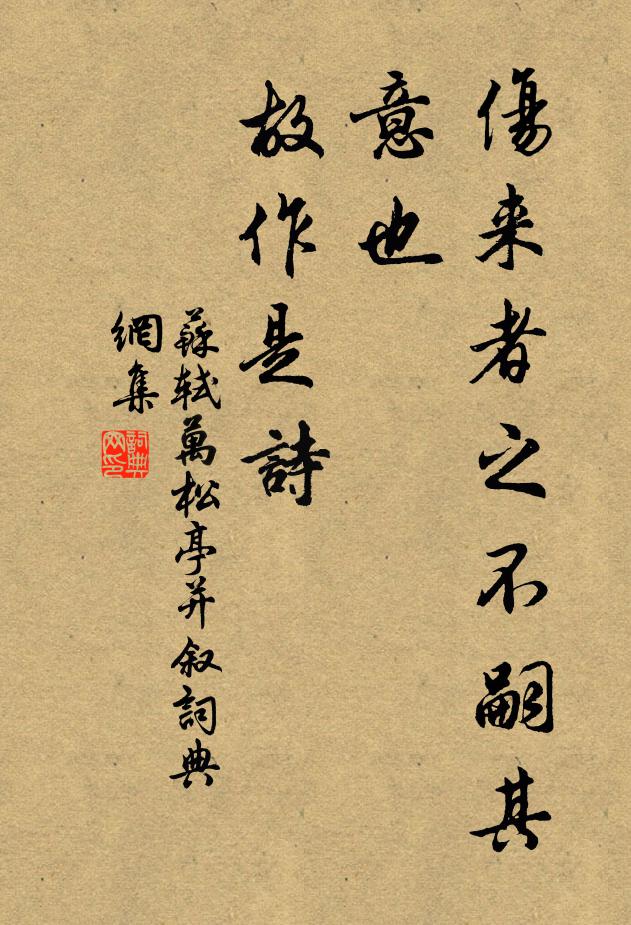 傷来者之不嗣其
意也
故作是詩
蘇軾萬松亭并叙詞典
網集
詞典
网印